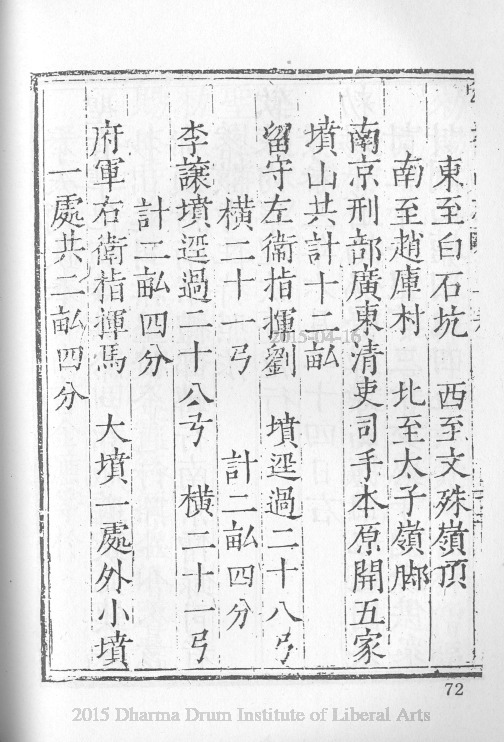 東至白石坑　西至文殊嶺頂
南至趙庫村　北至太子嶺脚
南京刑部廣東清吏司手本原開五家
墳山共計十二畝
留守左衞指揮劉　墳逕過二十八弓
橫二十一弓　計二畝四分
李譲墳逕過二十八弓　橫二十一弓
計二畝四分
府軍右衞指揮馬　大墳一處外小墳
一處共二畝四分
72
2015-04-16
2015 Dharma Drum Institute of Liberal Arts